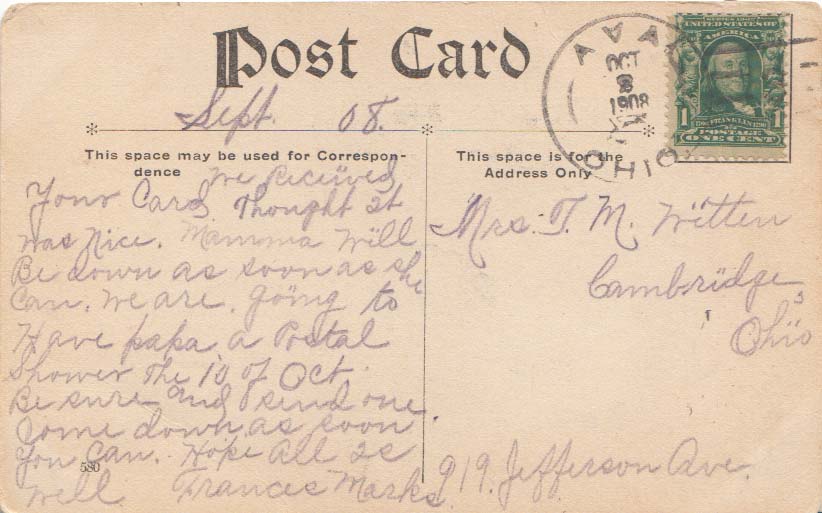 Post Card
Sept. 08.
This space may be used for Correspon-
dence
We Received
Your Card. Thought It
was Nice. Mamma Will
Be down as soon as she
Can. We are. Going to
Have papa, a Postal
Shower The 10 of Oct.
Be sure and send one.
Come down, as soon
You Can. Hope All Is
580
Well Frances Marks.
This space is for the
Address Only
Mrs. T. M. Witten
Cambridge,
Ohio
919. Jefferson Ave.
AVA
OCT
8
1908
OHIO.
SERIES 1902
UNITED STATES OF
AMERICA
1 1
FRANKLIN
POSTAGE
ONE CENT